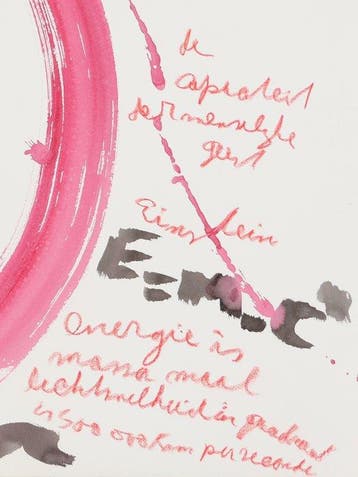 de
der menselyke
geest
Einstein
E=m.c²
energie is
massa maal
lichtsnelheid in quadraat
is 300 000 km per seconde